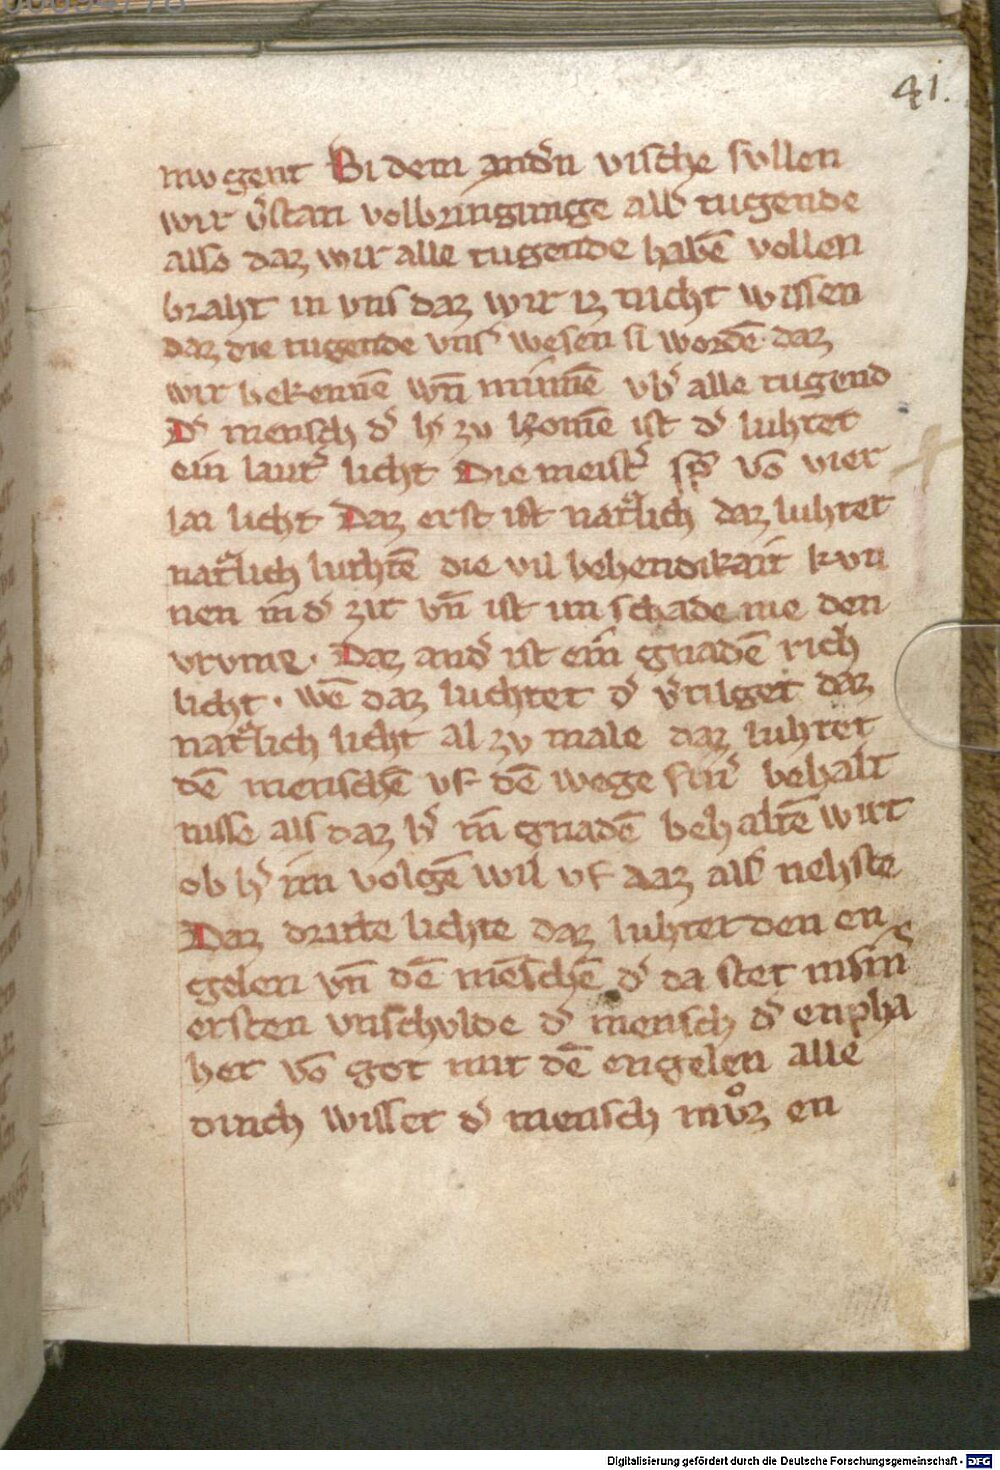 41.
mvgent Bi dem andˀn vische svllen
wir vˀstan volbringunge allˀ tugende
also daz wir alle tugende habē vollen
braht in vns daz wir iz nicht wissen
daz die tugende vnsˀ wesen si wordē daz
wir bekennē vn̄ minnē vbˀ alle tugend
Dˀ mensch dˀ hˀ zv komē ist dˀ luhtet
ein lautˀ licht Die meistˀ sp̄ vō vier
lai licht Daz erst ist natˀlich daz luhtet
natˀlich luhtē die vil behendikait kvn
nen in dˀ zit vn̄ ist im schade me den
vrvme. Daz andˀ ist ein gnadē rich
licht. wē daz luchtet dˀ vˀtilget daz
natˀlich licht al zv male daz luhtet
dē menschē vf dē wege sinˀ behalt
nisse als daz hˀ in gnadē behaltē wirt
ob hˀ im volgē wil vf daz allˀ nehste
Daz dritte lichte daz luhtet den en
gelen vn̄ dē mēschē dˀ da stet in sinˀ
ersten vnschvlde dˀ mensch dˀ enpha
het vō got mit dē engelen alle
dinch wisset dˀ mensch mvͦz en
Digitalisierung gefördert durch die Deutsche Forschungsgemeinschaft - DFG